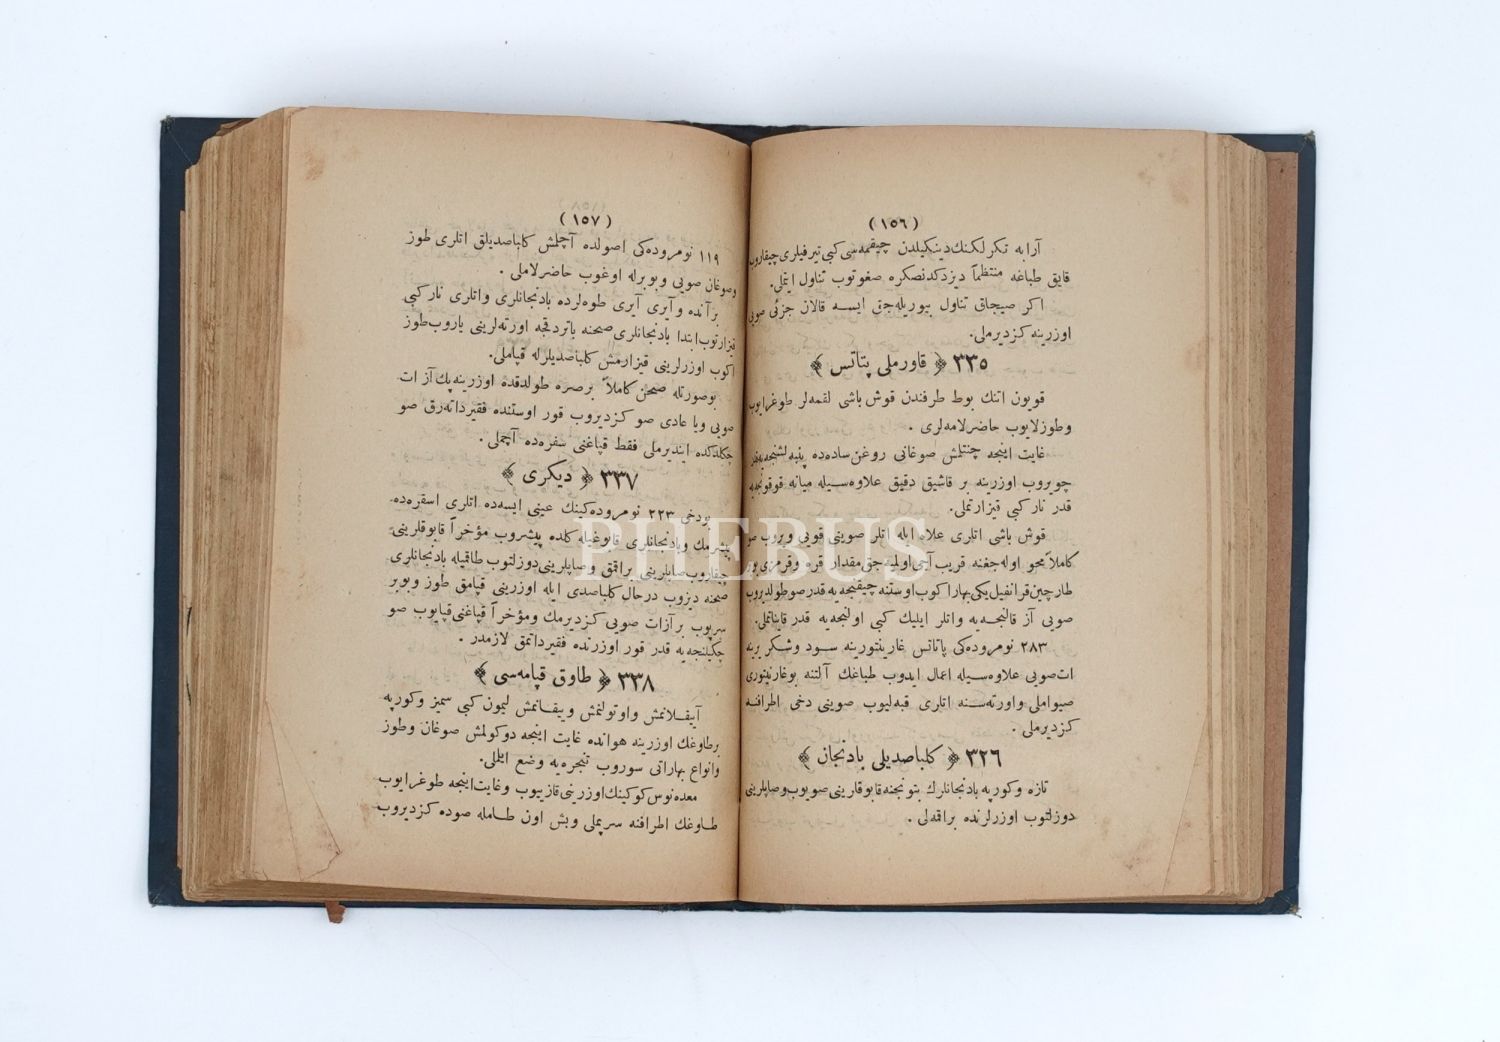 (١٥٦)
آرابه تكرلكنك دينكيلدن چيقمه‌سی كبی تيرفيلری چيقاروب
قايق طباغه منتظماً ديزدكدنصكره صغوتوب تناول ايتملی.
اكر صيجاق تناول بيوريله‌جق ايسه قالان جزئی صويی
اوزرينه كزديرملی.
٣٣٥ ﴿ قاورملی پتاتس ﴾
قويون اتنك بوط طرفندن قوش باشی لقمه‌لر طوغرايوب
وطوزلايوب حاضرلامه‌لری .
غايت اينجه چنتلمش صوغانی روغن ساده‌ده پنبه‌لشنجه‌يه‌قدر
چويروب اوزرينه بر قاشيق دقيق علاوه‌سيله ميانه قوقونجه‌يه
قدر نار كبی قيزارتملی.
قوش باشی اتلری علاه ايله اتلر صوينی قويی ويروب صو
كاملاً محو اوله‌جغنه قريب آجی اوليه‌جق مقدار قره وقرمزی بوبر
طارچين قرانفيل يكی بهار اكوب اوستنه چيقنجه‌يه قدر صو طولديروب
صويی آز قالنجه‌يه واتلر ايليك كبی اولنجه‌يه قدر قايناتملی.
٢٨٣ نومروده‌كی پاتاتس غارنيتورينه سود وشكر يرينه
ات‌صويی علاوه‌سيله اعمال ايدوب طباغك آلتنه بوغارنيتوری
صيواملی واورته‌سنه اتلری قبه‌ليوب صوينی دخی اطرافنه
كزديرملی .
٣٢٦ ﴿ كلباصديلی بادنجان ﴾
تازه وكورپه بادنجانلرك بتونجنه قابوقارينی صويوب وصاپلرينی
دوزلتوب اوزرلرنده براقمه‌لی .
(١٥٧)
١١٩ نومروده‌كی اصولده آچلمش كلباصديلق اتلری طوز
وصوغان صويی وبوبرله اوغوب حاضرلاملی .
برآنده وآيری آيری طوه‌لرده بادنجانلری واتلری ناركبی
قيزارتوب ابتدا بادنجانلری صحنه ياتردقجه اورته‌لرينی ياروب طوز
اكوب اوزرلرينی قيزارمش كلباصديلرله قپاملی.
بوصورتله صحن كاملاً برصره طولدقده اوزرينه پك آز ات
صويی ويا عادی صو كزديروب قور اوستنده فقيرداته‌رق صو
چكلدكده اينديرملی فقط قپاغنی سفره‌ده آچملی.
٣٣٧ ﴿ ديكری ﴾
بودخی ٢٢٣ نومروده‌كينك عينی ايسه‌ده اتلری اسقره‌ده
پيشرمك وبادنجانلری قابوغيله كلده پيشروب مؤخراً قابوقلرينی
چيقاروب صاپلرينی براقمق وصاپلرينی دوزلتوب طاقميله بادنجانلری
صحنه ديزوب درحال كلباصدی ايله اوزرينی قپامق طوز وبوبر
سرپوب برآزات صويی كزديرمك ومؤخراً قپاغنی قپايوب صو
چكيلنجه‌يه قدر قور اوزرنده فقيرداتمق لازمدر .
٣٣٨ ﴿ طاوق قپامه‌سی ﴾
آييقلانمش واوتولنمش وييقانمش ليمون كبی سميز وكورپه
برطاوغك اوزرينه هوانده غايت اينجه دوكولمش صوغان وطوز
وانواع بهاراتی سوروب تنجره‌يه وضع ايتملی.
معده‌نوس كوكينك اوزرينی قازييوب وغايت اينجه طوغرايوب
طاوغك اطرافنه سرپملی وبش اون طامله صوده كزديروب
PHEBUS